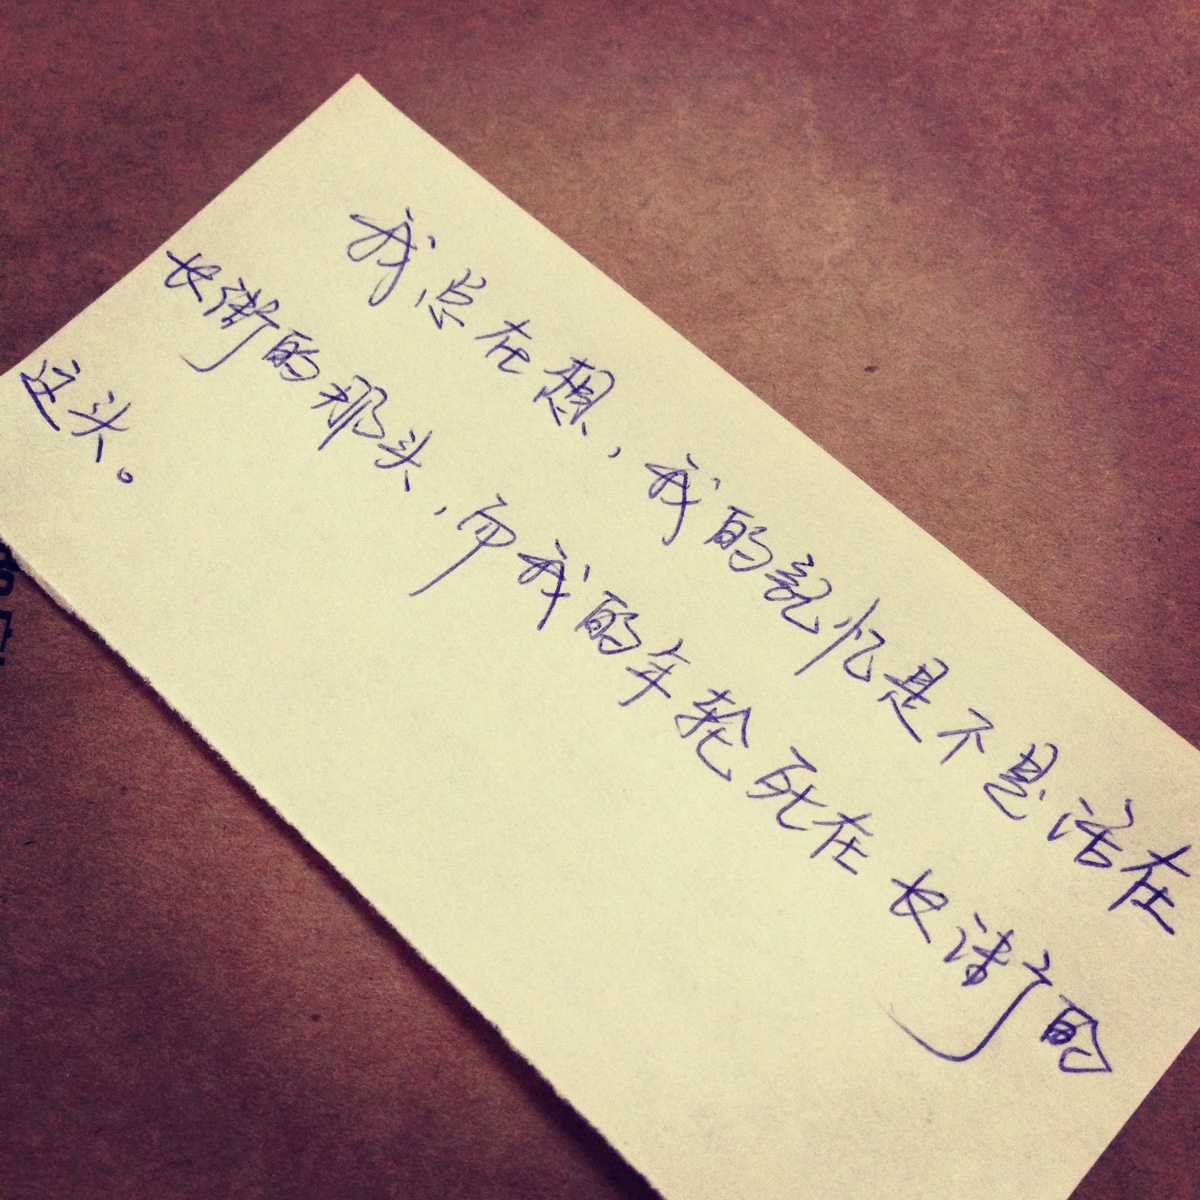 我总在想，我的記忆是不是活在
长街的那头，而我的年轮死在长街的
这头。